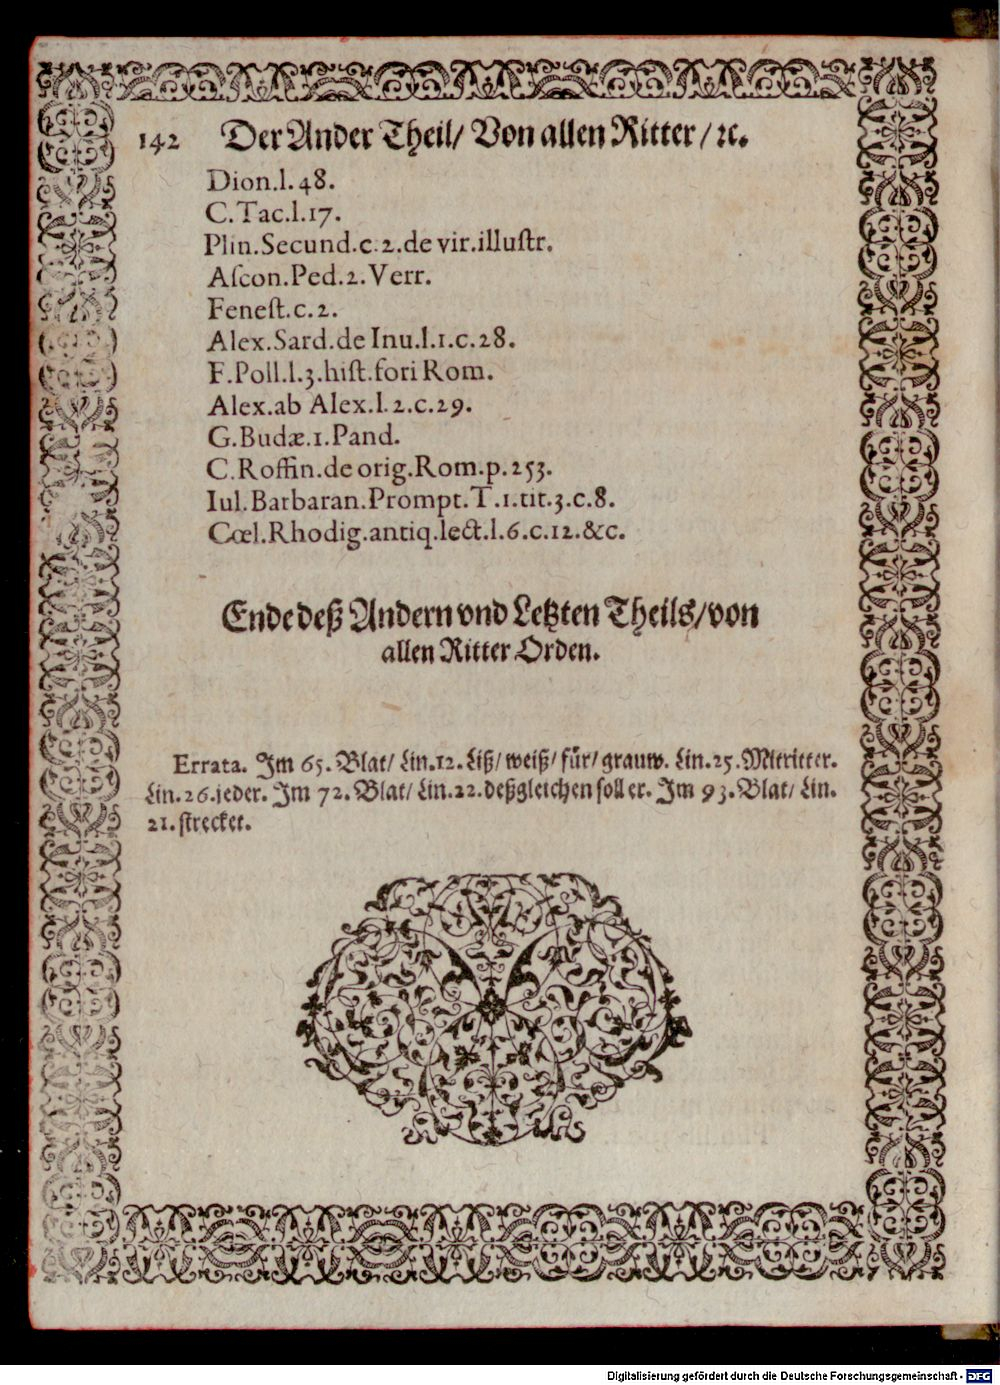 142 Der Ander Theil/ Von allen Ritter/ ꝛc.
Dion.l.48.
C.Tac.l.17.
Plin.Secund.c.2.de vir.illuſtr.
Aſcon.Ped.2.Verr.
Feneſt.c.2.
Alex.Sard.de Inu.l.1.c.28.
F.Poll.l.3.hiſt.fori Rom.
Alex.ab Alex.l.2.c.29.
G.Budæ.1.Pand.
C.Roffin.de orig.Rom.p.253.
Iul.Barbaran.Prompt.T.1.tit.3.c.8.
Cœl.Rhodig.antiq.lect.l.6.c.12.&c.
Ende deß Andern vnd Letzten Theils/von
allen Ritter Orden.
Errata. Im 65. Blat/ Lin.12. Liß/ weiß/ für/ grauw. Lin.25. Mitritter.
Lin.26.jeder. Im 72. Blat/ Lin.22.deßgleichen ſoll er. Im 93. Blat/ Lin.
21. ſtrecket.
Digitalisierung gefördert durch die Deutsche Forschungsgemeinschaft - DFG